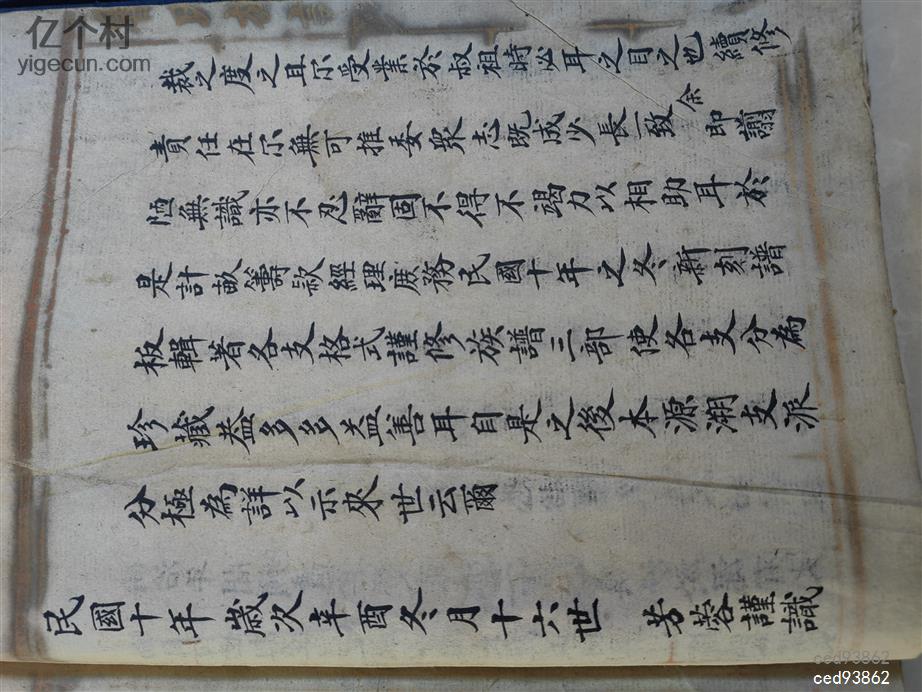 亿个村
yigecun.com
裁之度之且尔受業於叔祖時必耳之目之也續修
責任在尔無可推委衆志既成少長一致余即謭
陋無識亦不忍辭固不得不竭力以相助耳於
是計畝籌款經理庶務民國十年之冬新刻譜
板輯著各支格式謹修族譜三部使各支分為
珍藏益多多益善耳自是之後本源溯支派
分極為詳以示來世云爾
民國十年歲次辛酉冬月十六世 芳蓉謹識
ced93862
ced93862